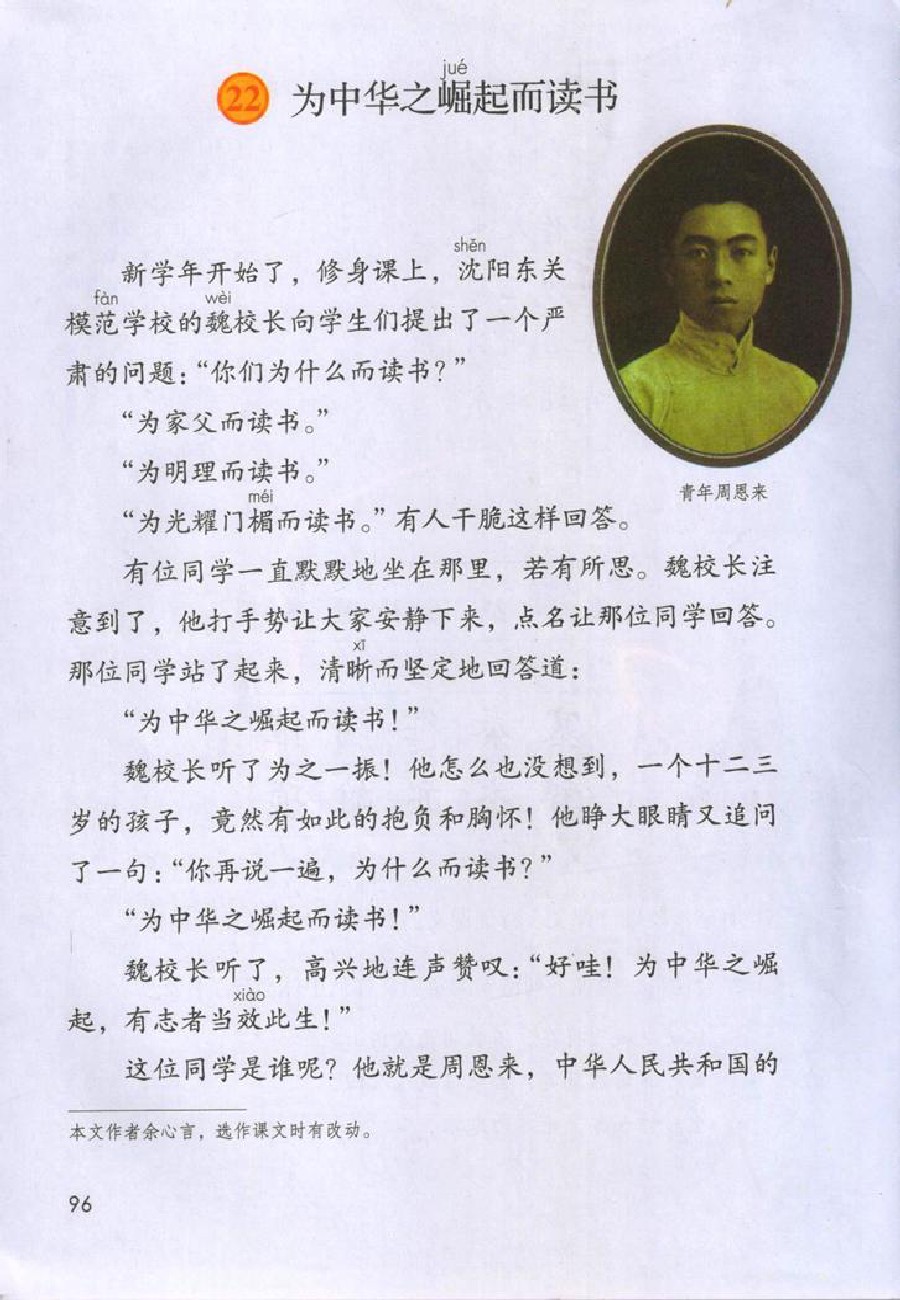 jué
22 为中华之崛起而读书
shěn
新学年开始了，修身课上，沈阳东关
fàn wèi
模范学校的魏校长向学生们提出了一个严
肃的问题：“你们为什么而读书？”
“为家父而读书。”
“为明理而读书。”
méi
“为光耀门楣而读书。”有人干脆这样回答。
青年周恩来
有位同学一直默默地坐在那里，若有所思。魏校长注
意到了，他打手势让大家安静下来，点名让那位同学回答。
xī
那位同学站了起来，清晰而坚定地回答道：
“为中华之崛起而读书！”
魏校长听了为之一振！他怎么也没想到，一个十二三
岁的孩子，竟然有如此的抱负和胸怀！他睁大眼睛又追问
了一句：“你再说一遍，为什么而读书？”
“为中华之崛起而读书！”
魏校长听了，高兴地连声赞叹：“好哇！为中华之崛
xiào
起，有志者当效此生！”
这位同学是谁呢？他就是周恩来，中华人民共和国的
本文作者余心言，选作课文时有改动。
96